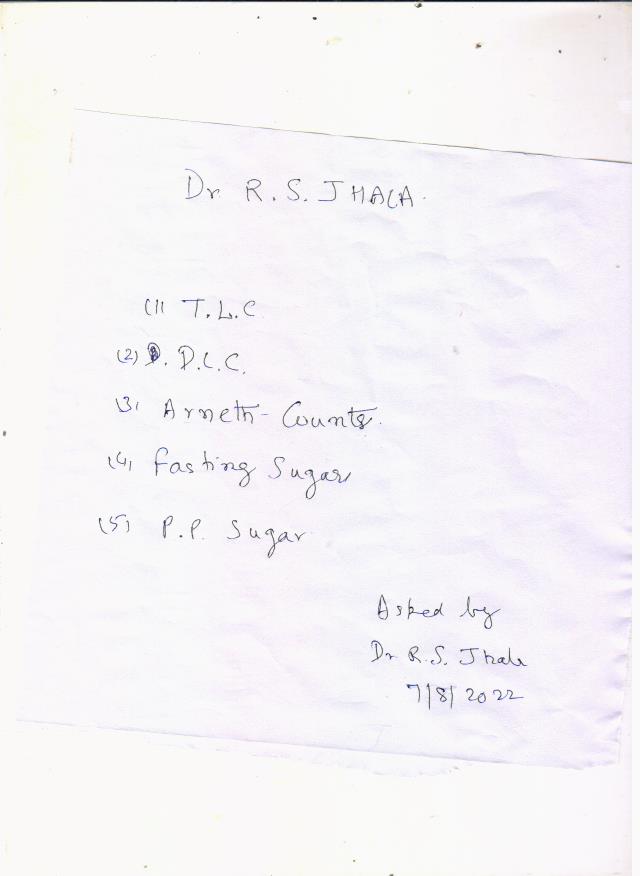 Dr. R. S. JHALA.
(1) T.L.C.
(2) D.L.C.
(3) Arneth-Counts.
(4) Fasting Sugar
(5) P.P. Sugar
Asked by
Dr R.S. Jhala
7/8/2022